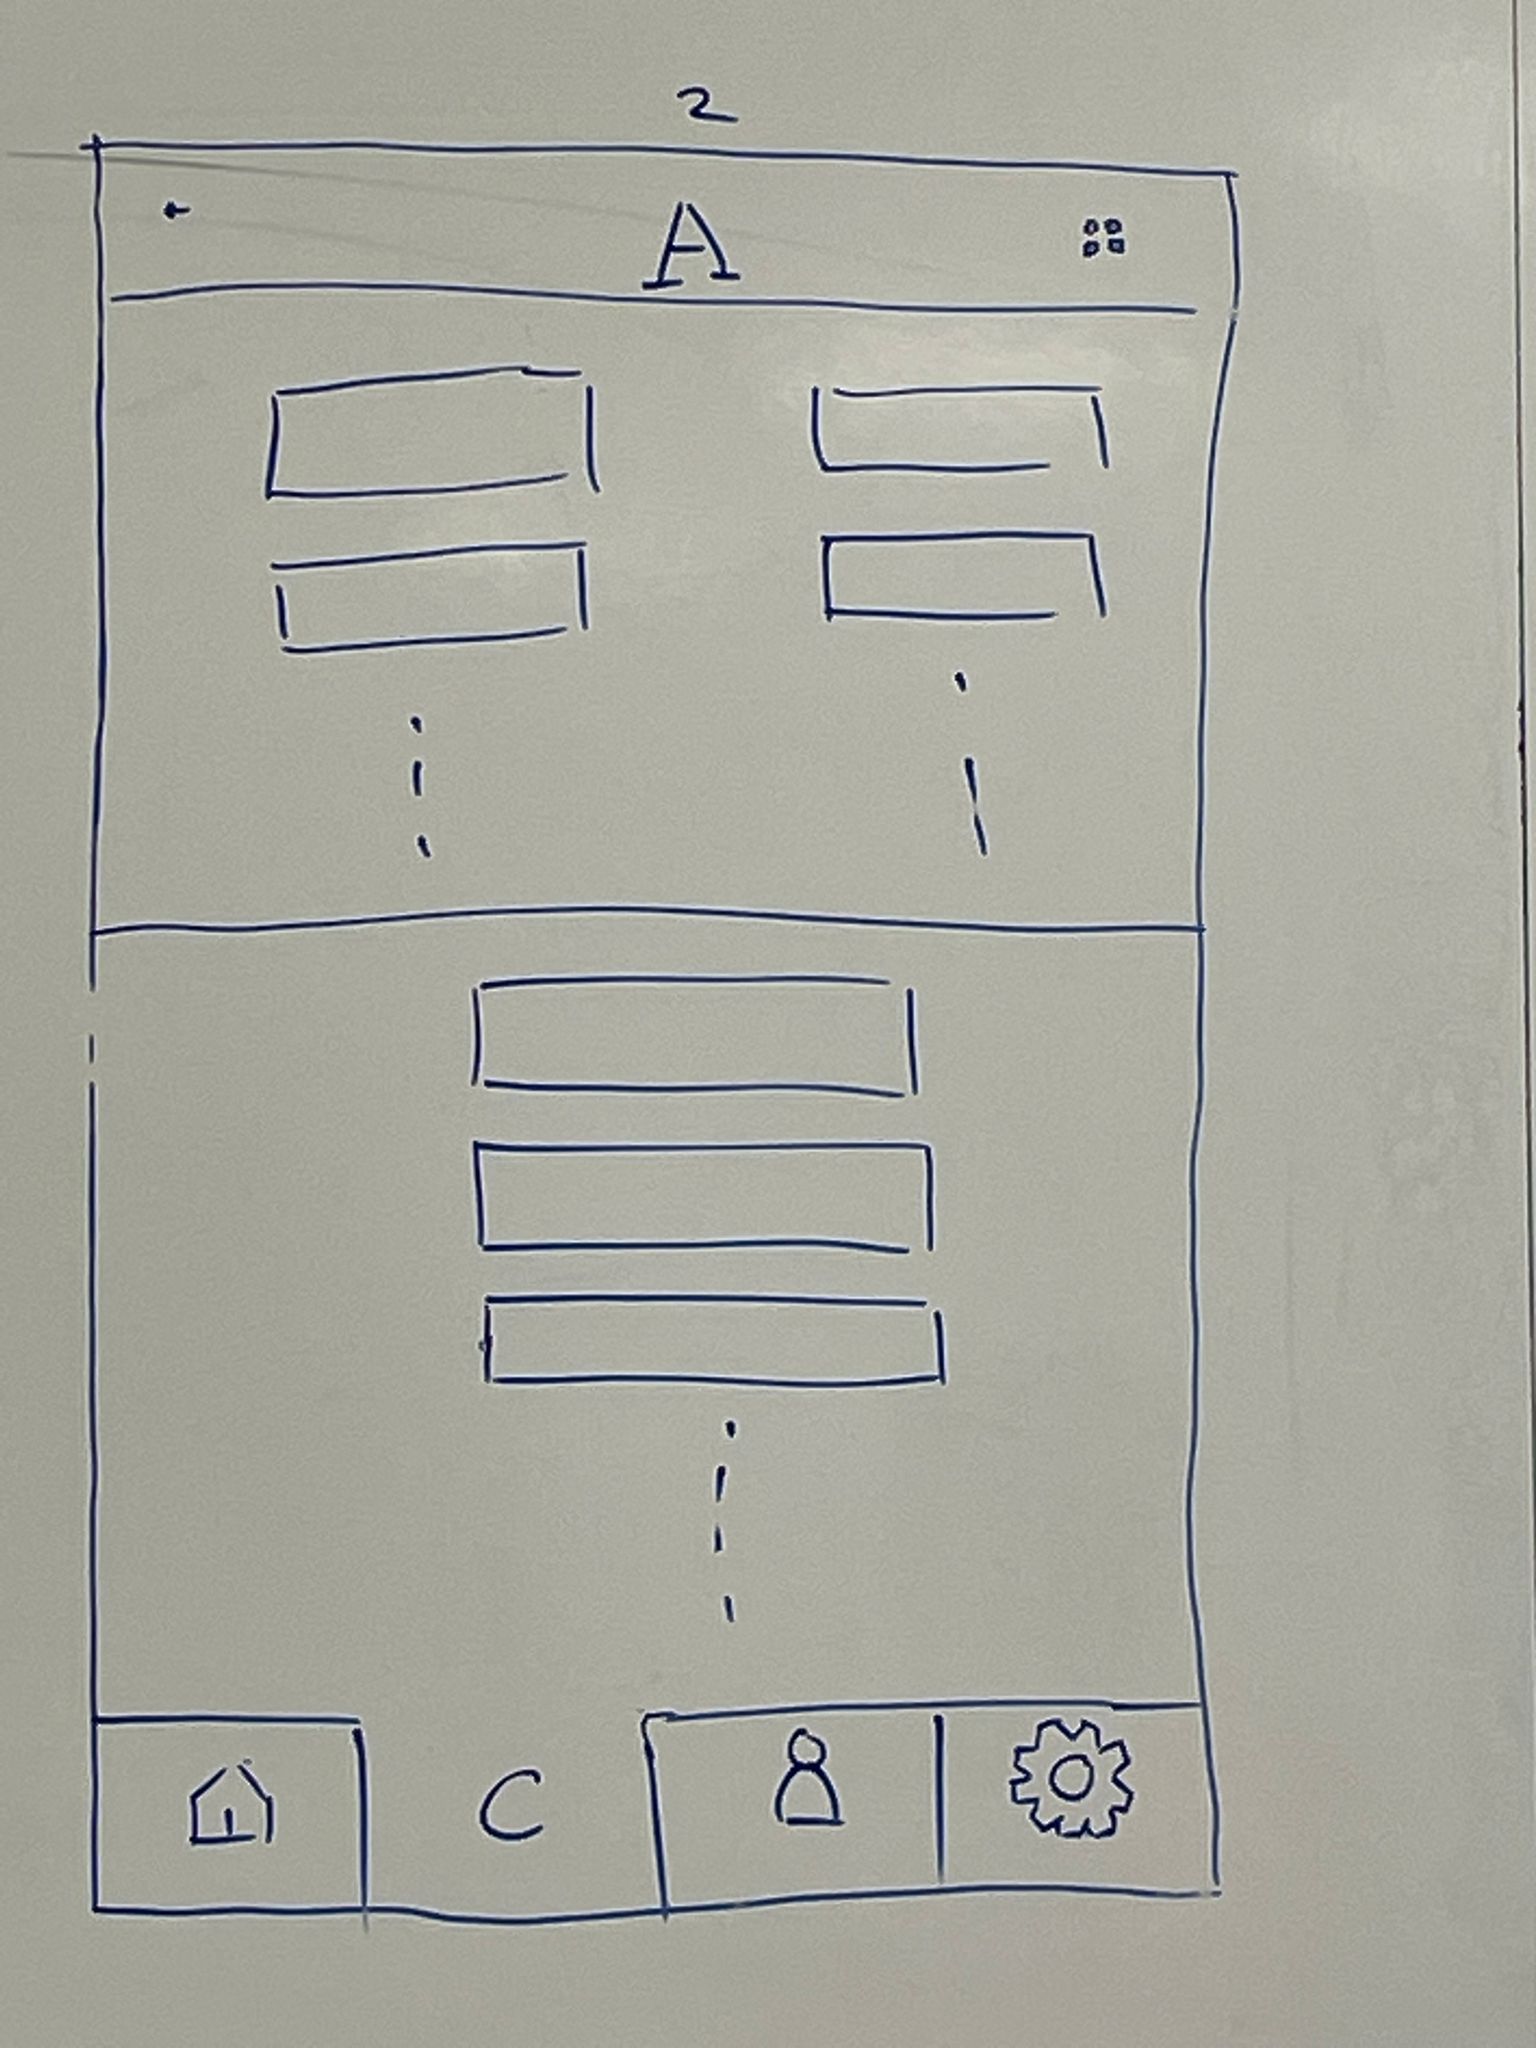 2
A
C